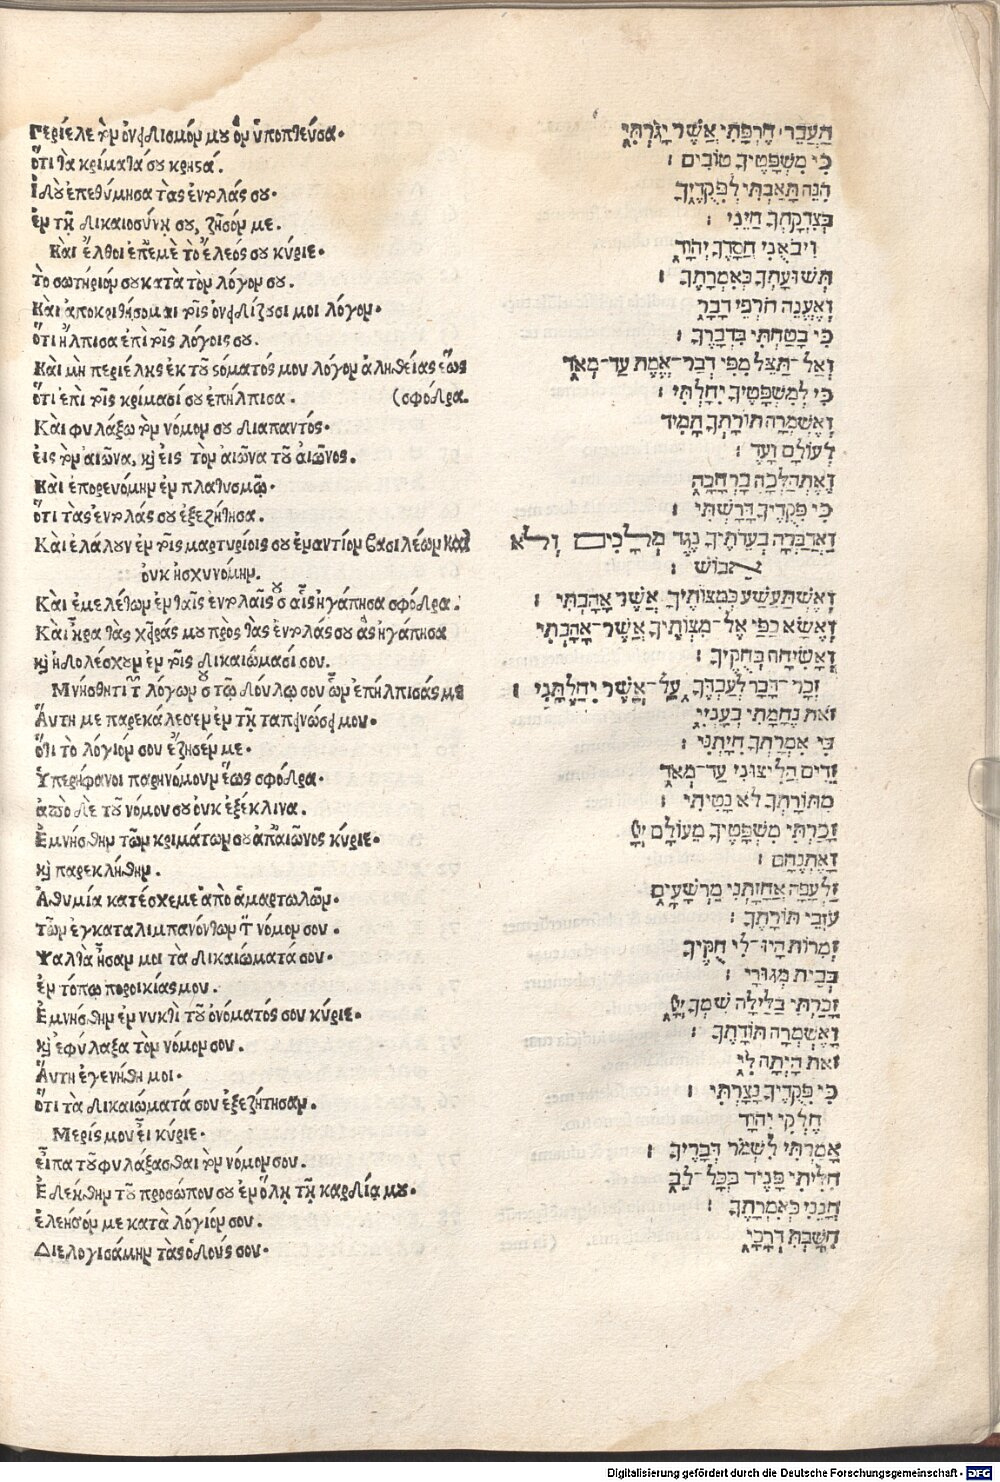 Περίελε τὸν ὀνειδισμόν μου ὃν ὑπόπτευσα.
ὅτι τὰ κρίματά σου χρηστά.
Ἰδοὺ ἐπεθύμησα τὰς ἐντολάς σου.
ἐν τῇ δικαιοσύνῃ σου, ζῆσόν με.
Καὶ ἔλθοι ἐπ' ἐμὲ τὸ ἔλεός σου κύριε.
Τὸ σωτήριόν σου κατὰ τὸν λόγον σου.
Καὶ ἀποκριθήσομαι τοῖς ὀνειδίζουσί μοι λόγον.
ὅτι ἤλπισα ἐπὶ τοῖς λόγοις σου.
Καὶ μὴ περιέλῃς ἐκ τοῦ σόματός μου λόγον ἀληθείας ἕως
ὅτι ἐπὶ τοῖς κρίμασί σου ἐπήλπισα. (σφόδρα.
Καὶ φυλάξω τὸν νόμον σου διαπαντός.
εἰς τὸν αἰῶνα, καὶ εἰς τὸν αἰῶνα τοῦ αἰῶνος.
Καὶ ἐπορευόμην ἐν πλατυσμῷ.
ὅτι τὰς ἐντολάς σου ἐξεζήτησα.
Καὶ ἐλάλουν ἐν τοῖς μαρτυρίοις σου ἐναντίον βασιλέων καὶ
οὐκ ἠσχυνόμην.
Καὶ ἐμελέτων ἐν ταῖς ἐντολαῖς σου αἷς ἠγάπησα σφόδρα.
Καὶ ἦρα τὰς χεῖράς μου πρὸς τὰς ἐντολάς σου ἃς ἠγάπησα
καὶ ἠδολέσχουν ἐν τοῖς δικαιώμασί σου.
Μνήσθητι τῶν λόγων σου τῷ δούλῳ σου ὧν ἐπήλπισάς με
Ἅυτη με παρεκάλεσεν ἐν τῇ ταπεινώσει μου.
ὅτι τὸ λόγιόν σου ἔζησέν με.
Ὑπερήφανοι παρηνόμουν ἕως σφόδρα.
ἀπὸ δὲ τοῦ νόμου σου οὐκ ἐξέκλινα.
Ἐμνήσθην τῶν κριμάτων σου ἀπ' αἰῶνος κύριε.
καὶ παρεκλήθην.
Ἀθυμία κατέσχε με ἀπὸ ἁμαρτωλῶν.
τῶν ἐγκαταλιμπανόντων τὸν νόμον σου.
Ψαλτὰ ἦσαν μοι τὰ δικαιώματά σου.
ἐν τόπῳ παροικίας μου.
Ἐμνήσθην ἐν νυκτὶ τοῦ ὀνόματός σου κύριε.
καὶ ἐφύλαξα τὸν νόμον σου.
Ἅυτη ἐγενήθη μοι.
ὅτι τὰ δικαιώματά σου ἐξεζήτησαν.
Μερίς μου εἶ κύριε.
εἶπα τοῦ φυλάξασθαι τὸν νόμον σου.
Ἐδεήθην τοῦ προσώπου σου ἐν ὅλῃ τῇ καρδίᾳ μου.
ἐλέησόν με κατὰ λόγιόν σου.
Διελογισάμην τὰς ὁδούς σου.
הַעֲבֵר חֶרְפָּתִי אֲשֶׁר יָגֹרְתִּי
כִּי מִשְׁפָּטֶיךָ טוֹבִים :
הִנֵּה תָּאַבְתִּי לְפִקֻּדֶיךָ
בְּצִדְקָתְךָ חַיֵּנִי :
וִיבֹאֻנִי חֲסָדֶךָ יְהוָֹד
תְּשׁוּעָתְךָ כְּאִמְרָתֶךָ :
וְאֶעֱנֶה חֹרְפִי דָבָר
כִּי בָטַחְתִּי בִּדְבָרֶךָ :
וְאַל־תַּצֵּל מִפִּי דְבַר־אֱמֶת עַד־מְאֹד
כִּי לְמִשְׁפָּטֶיךָ יִחָלְתִּי :
וְאֶשְׁמְרָה תוֹרָתְךָ תָמִיד
לְעוֹלָם וָעֶד :
וְאֶתְהַלְּכָה בָרְחָבָה
כִּי פִקֻּדֶיךָ דָרָשְׁתִּי :
וַאֲדַבְּרָה בְעֵדֹתֶיךָ נֶגֶד מְלָכִים וְלֹא
אֵבוֹשׁ :
וְאֶשְׁתַּעֲשַׁע בְּמִצְוֹתֶיךָ אֲשֶׁר אָהָבְתִּי :
וְאֶשָּׂא כַפַּי אֶל־מִצְוֹתֶיךָ אֲשֶׁר־אָהָבְתִּי
וְאָשִׂיחָה בְחֻקֶּיךָ :
זְכָר־דָּבָר לְעַבְדֶּךָ עַל־אֲשֶׁר יִחַלְתָּנִי :
זֹאת נֶחָמָתִי בְעָנְיִי
כִּי אִמְרָתְךָ חִיָּתְנִי :
זֵדִים הֱלִיצוּנִי עַד־מְאֹד
מִתּוֹרָתְךָ לֹא נָטִיתִי :
זָכַרְתִּי מִשְׁפָּטֶיךָ מֵעוֹלָם יְיָ
וָאֶתְנֶחָם :
זַלְעָפָה אֲחָזַתְנִי מֵרְשָׁעִים
עֹזְבֵי תּוֹרָתֶךָ :
זְמִרוֹת הָיוּ־לִי חֻקֶּיךָ
בְּבֵית מְגוּרָי :
זָכַרְתִּי בַלַּיְלָה שִׁמְךָ יְיָ
וָאֶשְׁמְרָה תּוֹרָתֶךָ :
זֹאת הָיְתָה לִּי
כִּי פִקֻּדֶיךָ נָצָרְתִּי :
חֶלְקִי יְהוָֹד
אָמַרְתִּי לִשְׁמֹר דְּבָרֶיךָ :
חִלִּיתִי פָנֶיךָ בְכָל־לֵב
חָנֵּנִי כְּאִמְרָתֶךָ :
חִשַּׁבְתִּי דְרָכָי
Digitalisierung gefördert durch die Deutsche Forschungsgemeinschaft - DFG